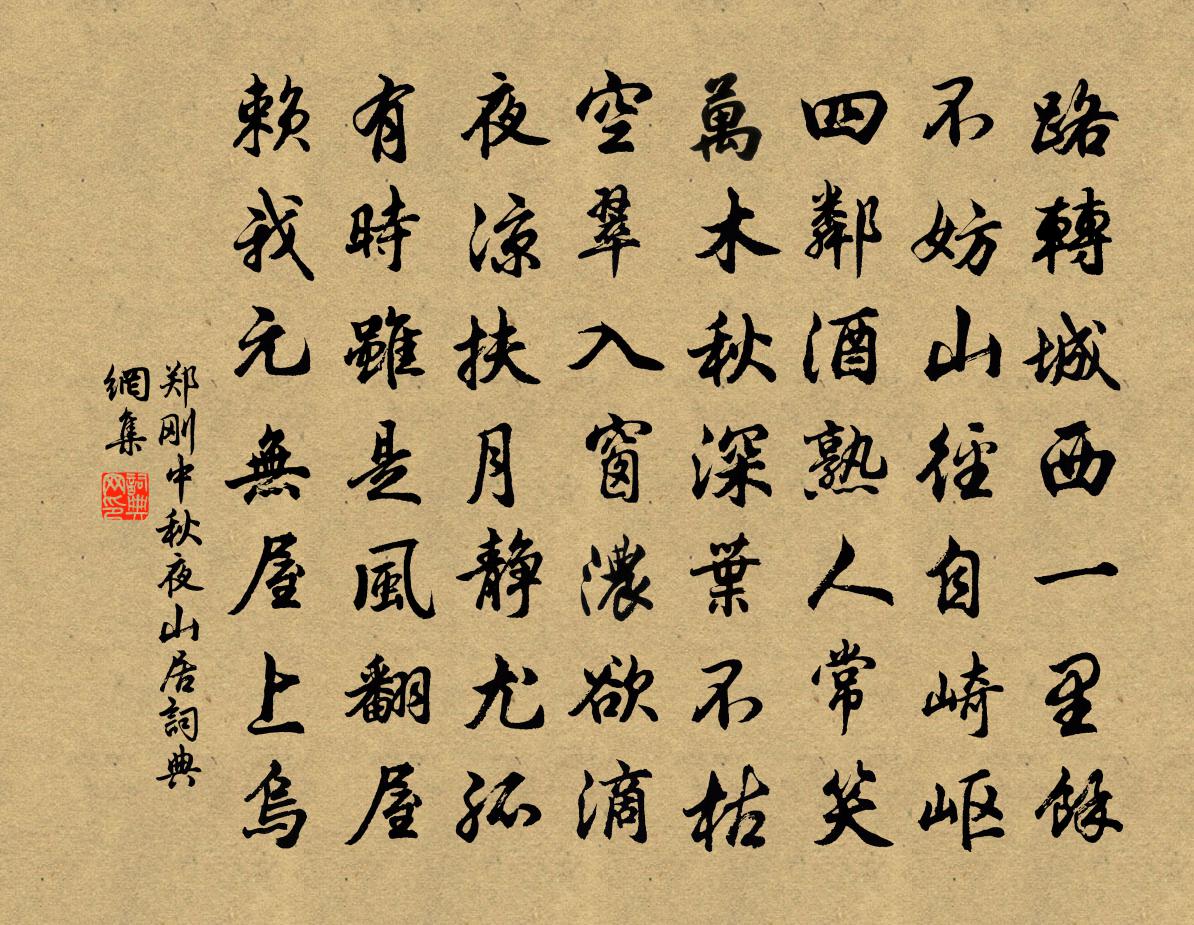 路轉城西一里餘
不妨山徑自崎岖
四鄰酒熟人常笑
萬木秋深葉不枯
空翠入窗濃欲滴
夜涼扶月靜尤孤
有時雖是風翻屋
賴我元無屋上烏
郑刚中秋夜山居詞典
網集
詞典
网印